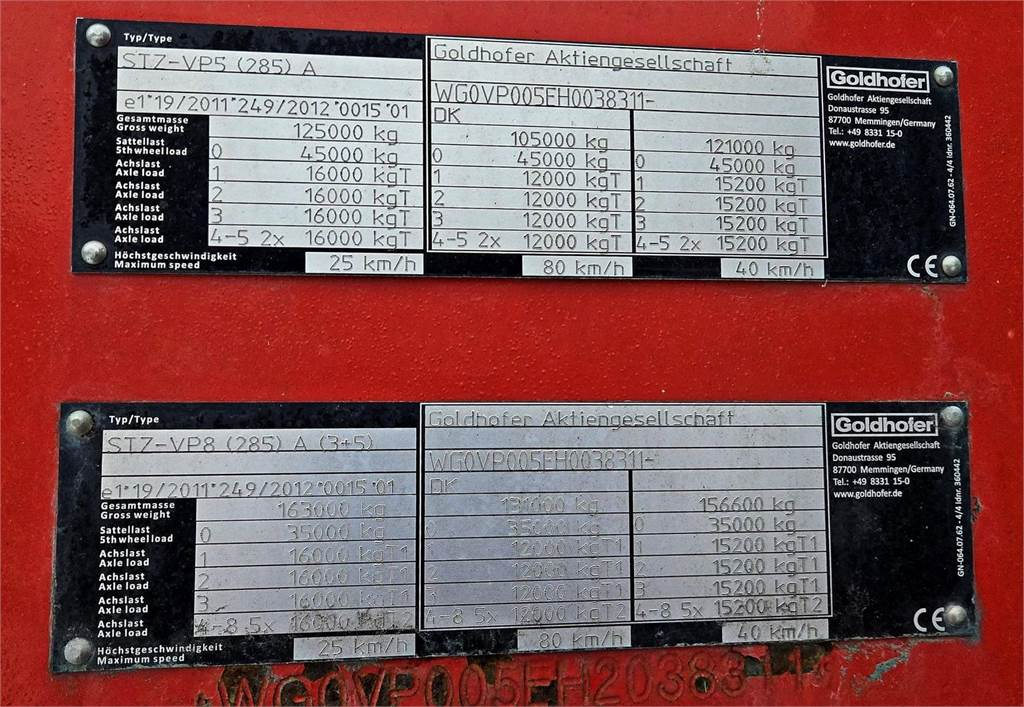 Typ/Type
STZ-VP5 (285) A
e1*19/2011*249/2012*0015*01
Gesamtmasse
Gross weight
125000 kg
Sattellast
5th wheel load
0 45000 kg
Achslast
Axle load
1 16000 kgT
Achslast
Axle load
2 16000 kgT
Achslast
Axle load
3 16000 kgT
Achslast
Axle load
4-5 2x 16000 kgT
Höchstgeschwindigkeit
Maximum speed
25 km/h
Goldhofer Aktiengesellschaft
WG0VP005EH0038311-
DK
105000 kg
0 45000 kg
1 12000 kgT
2 12000 kgT
3 12000 kgT
4-5 2x 12000 kgT
80 km/h
121000 kg
0 45000 kg
1 15200 kgT
2 15200 kgT
3 15200 kgT
4-5 2x 15200 kgT
40 km/h
Goldhofer
Goldhofer Aktiengesellschaft
Donaustrasse 95
87700 Memmingen/Germany
Tel.: +49 8331 15-0
www.goldhofer.de
GN-064.07.62 - 4/4 Idnr. 360442
CE
Typ/Type
STZ-VP8 (285) A (3+5)
e1*19/2011*249/2012*0015*01
Gesamtmasse
Gross weight
163000 kg
Sattellast
5th wheel load
0 35000 kg
Achslast
Axle load
1 16000 kgT1
Achslast
Axle load
2 16000 kgT1
Achslast
Axle load
3 16000 kgT1
Achslast
Axle load
4-8 5x 16000 kgT2
Höchstgeschwindigkeit
Maximum speed
25 km/h
Goldhofer Aktiengesellschaft
WG0VP005EH0038311-
DK
131000 kg
35000 kg
1 12000 kgT1
12000 kgT1
12000 kgT1
4-8 5x 12000 kgT2
80 km/h
156600 kg
0 35000 kg
1 15200 kgT1
2 15200 kgT1
3 15200 kgT1
4-8 5x 15200 kgT2
40 km/h
Goldhofer
Goldhofer Aktiengesellschaft
Donaustrasse 95
87700 Memmingen/Germany
Tel.: +49 8331 15-0
www.goldhofer.de
GN-064.07.62 - 4/4 Idnr. 360442
CE
WG0VP005EH2038311